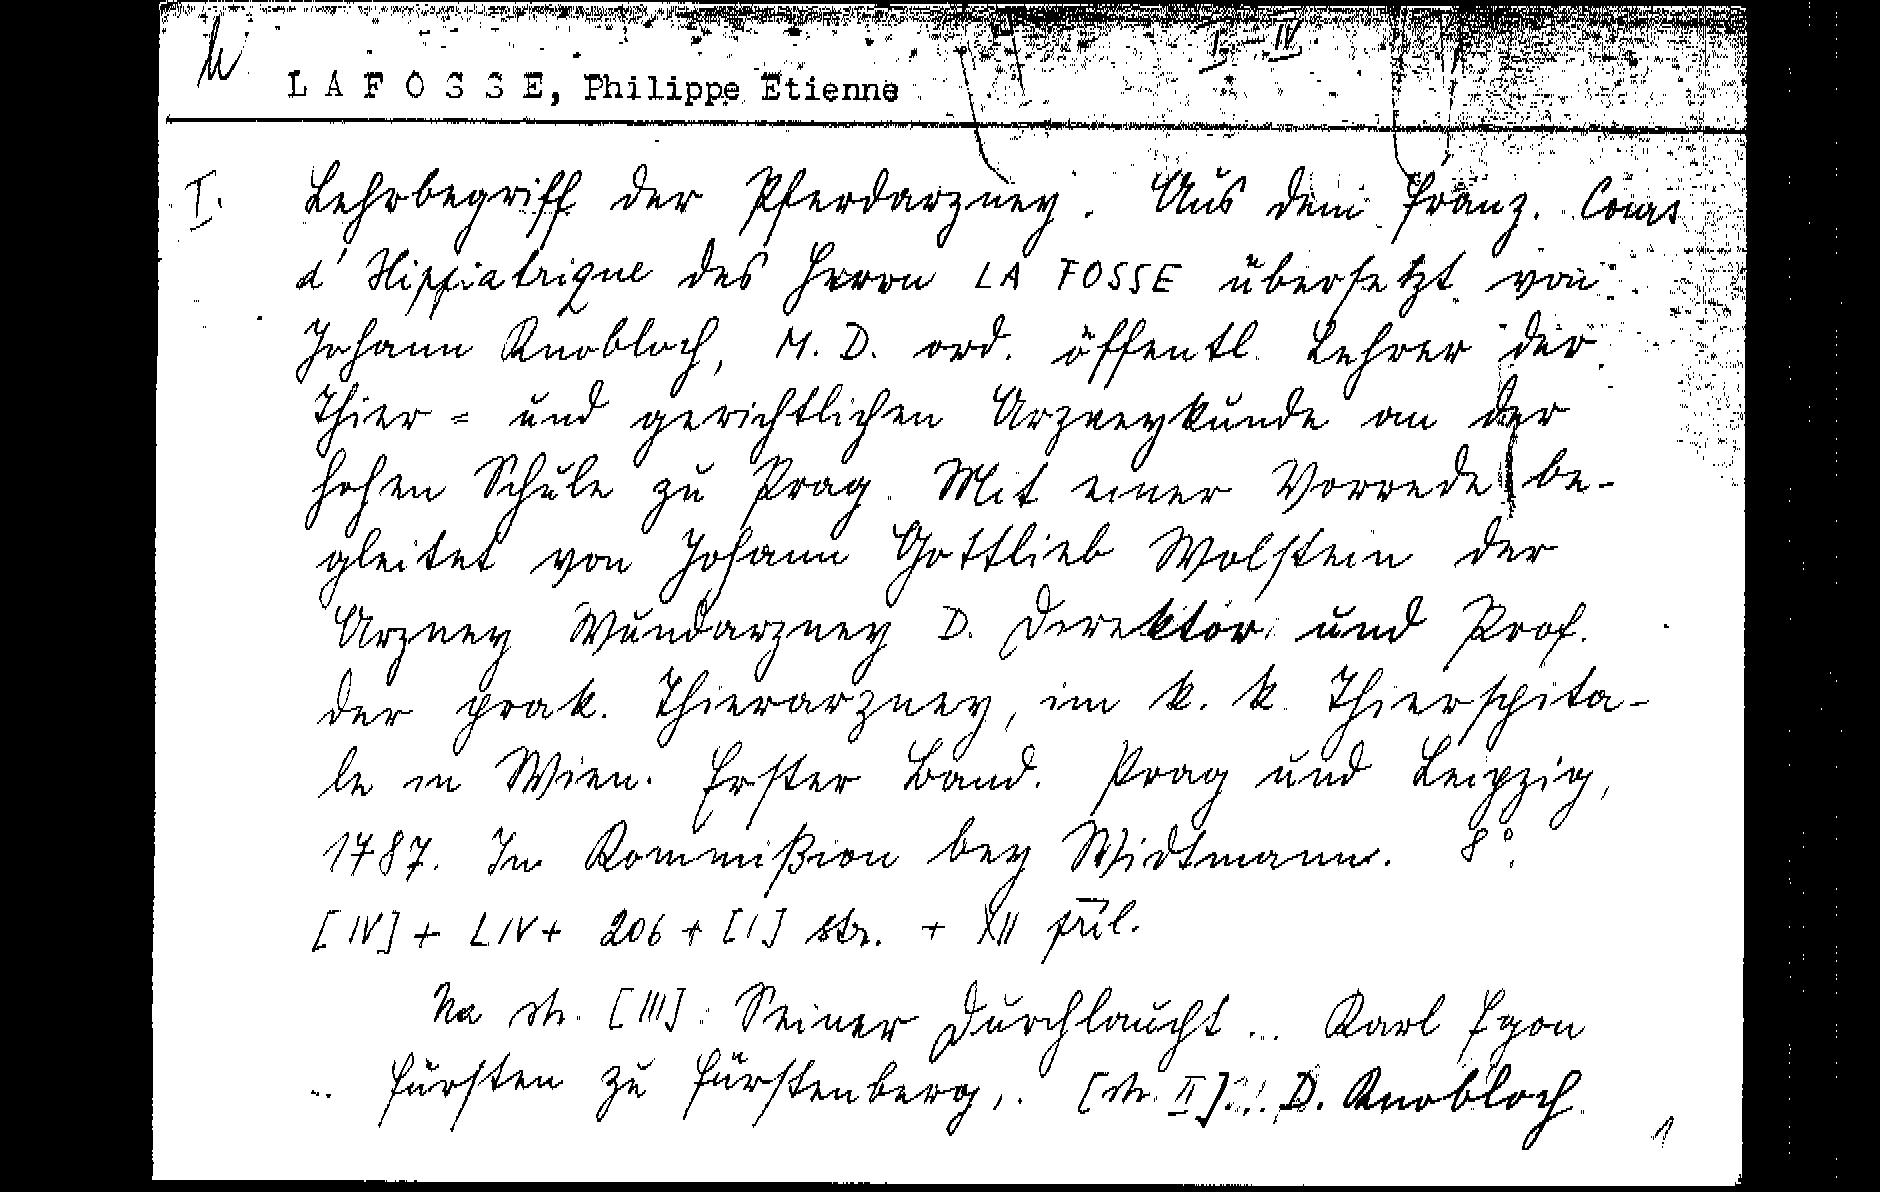 I. – IV.
LAFOSSE, Philippe Etienne
I. Lehrbegriff der Pferdarzney. Aus dem franz. Cours
d'Hippiatrique des Herrn LA FOSSE übersetzt von
Johann Knobloch, M. D. ord. öffentl. Lehrer der
Thier = und gerichtlichen Arzneykunde an der
hohen Schule zu Prag. Mit einer Vorrede be-
gleitet von Johann Gottlieb Wolstein der
Arzney Wundarzney D. Direktor und Prof.
der prak. Thierarzney, im k. k. Thierspita-
le in Wien. Erster Band. Prag und Leipzig,
1787. In Kommißion bey Widtmann. 8°.
[IV] + LIV + 206 + [I] str. + XII příl.
Na str. [III]: Seiner Durchlaucht ... Karl Egon
.. Fürsten zu Fürstenberg, . [str. II] ... D. Knobloch
1